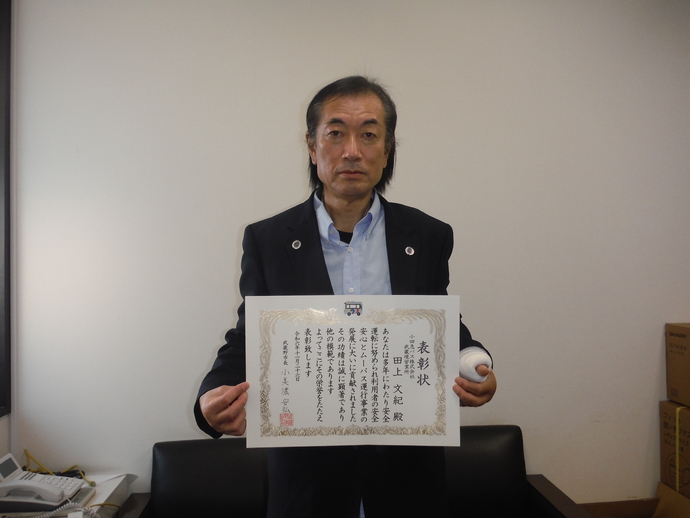 表彰状
小田急バス株式会社
武蔵境営業所
田上 文紀 殿
あなたは多年にわたり安全
運転に努められ利用者の安全
安心とムーバス運行事業の
発展に大いに貢献されました
その功績は誠に顕著であり
他の模範であります
よってここにその栄誉をたたえ
表彰致します
令和六年十一月二十二日
武蔵野市長 小美濃 安弘